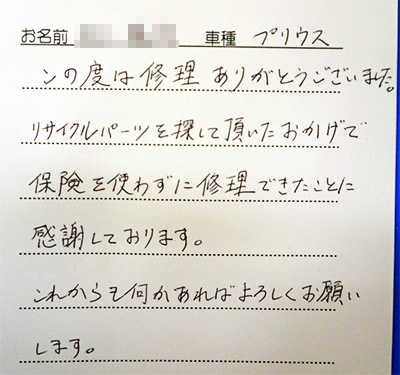 お名前 車種 プリウス
この度は修理ありがとうございました。
リサイクルパーツを探して頂いたおかげで
保険を使わずに修理できたことに
感謝しております。
これからも何かあればよろしくお願い
します。